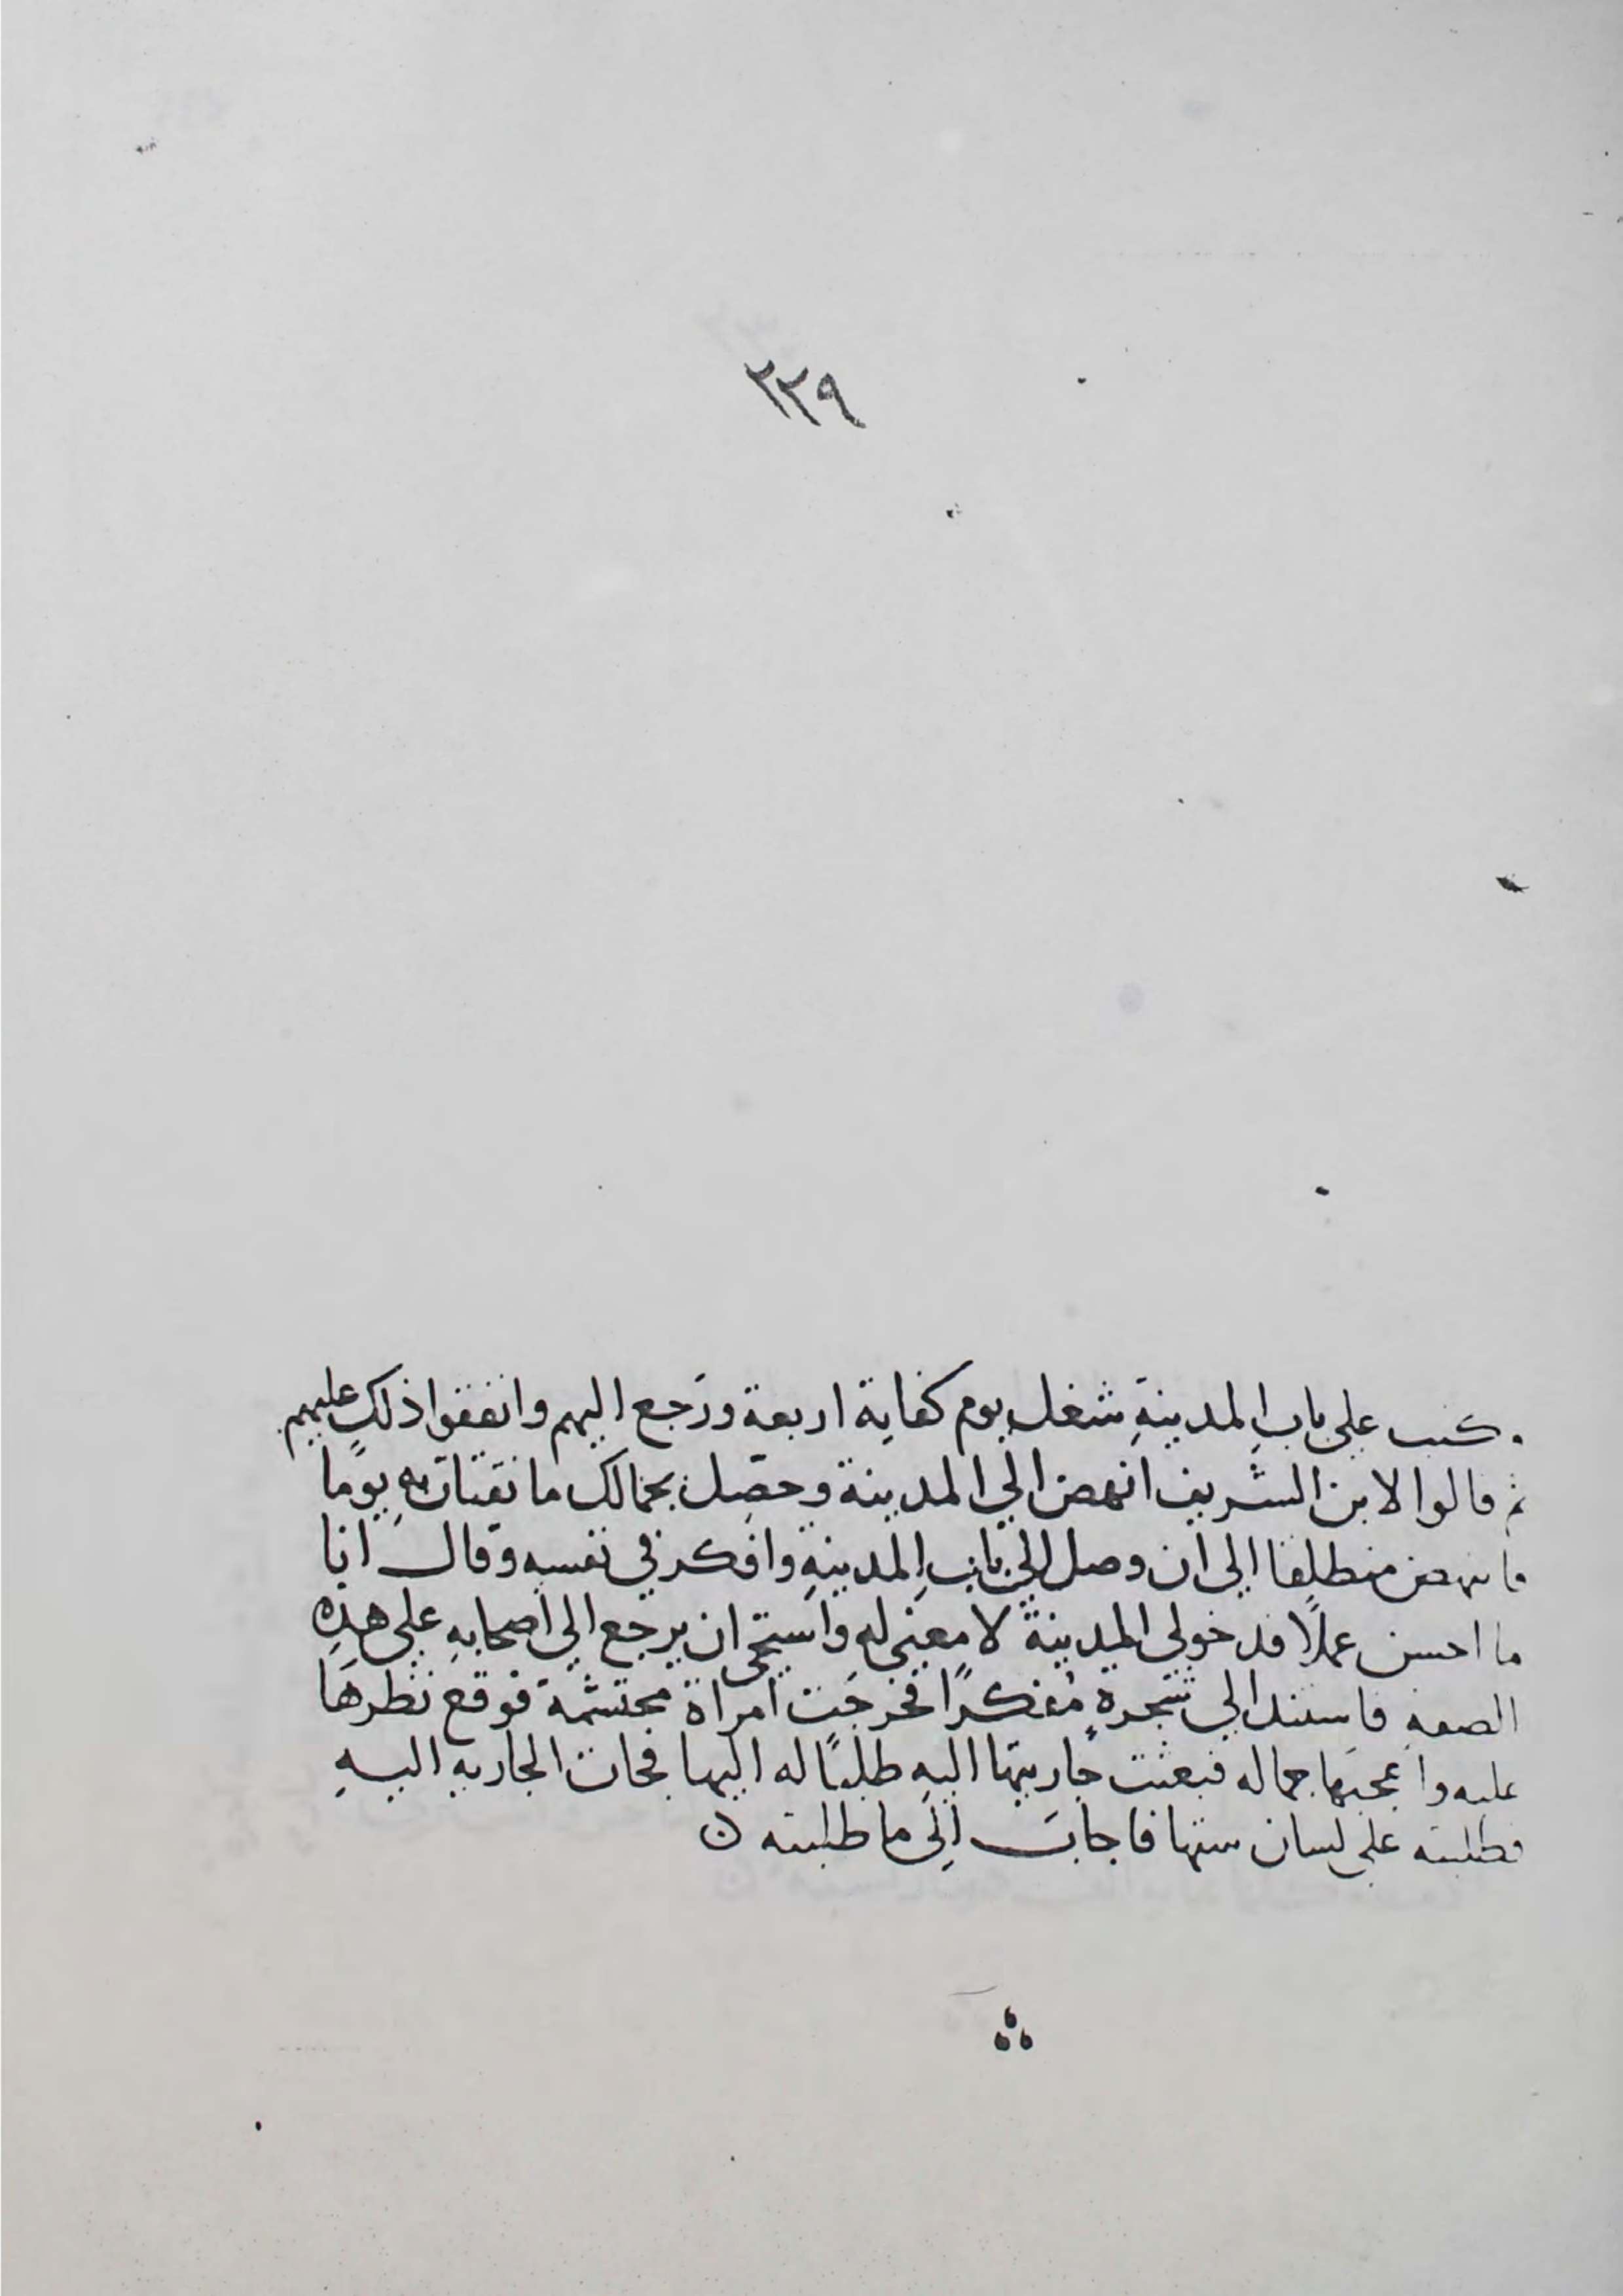 ٢٢٩
وكتب على باب المدينةِ شغل يوم كفاية اربعة ورَجع اليهم وانفقوا ذلك عليهم
ثم قالوا لابن الشريف انهض الي المدينة وحصّل بجمالك ما نقتات بهِ يومًا
فانهض منطلقا الى ان وصل الي باب المدينةِ وافكر في نفسه وقال انا
ما احسن عملًا فدخولى المدينة لا معنى له واستحى ان يرجع الي اصحابهِ على هذِه
الصفهِ فاستند الي شجره مُفكرًا فخرجَت امراة محتشمة فوقع نظرهَا
عليه واعجبَها جماله فبعثت جاريتها اليهِ طلبًا له اليها فجات الجاريه اليهِ
فطلبته على لسان ستها فاجابَ الِى ما طلبته ن